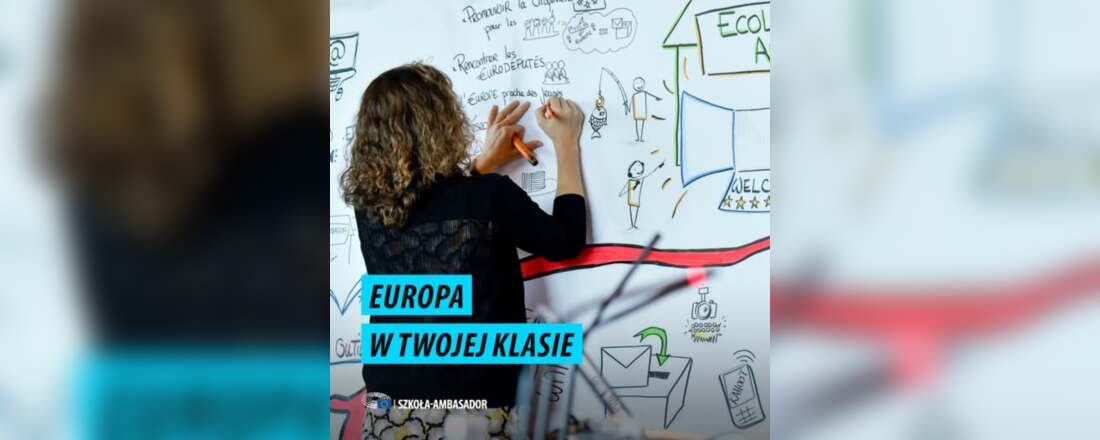 PROMOUVOIR la
pour les
Rencontrer les
EURODÉPUTÉS
l'EUROPE proche des jeunes
ECOL
A
WELC
EUROPA
W TWOJEJ KLASIE
SZKOŁA-AMBASADOR